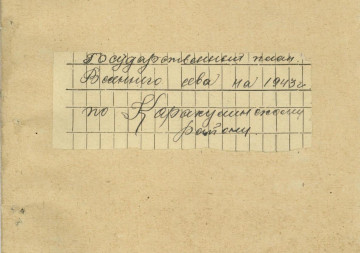 Государственный план
Военного сева на 1943г
по Каракулинскому
району.